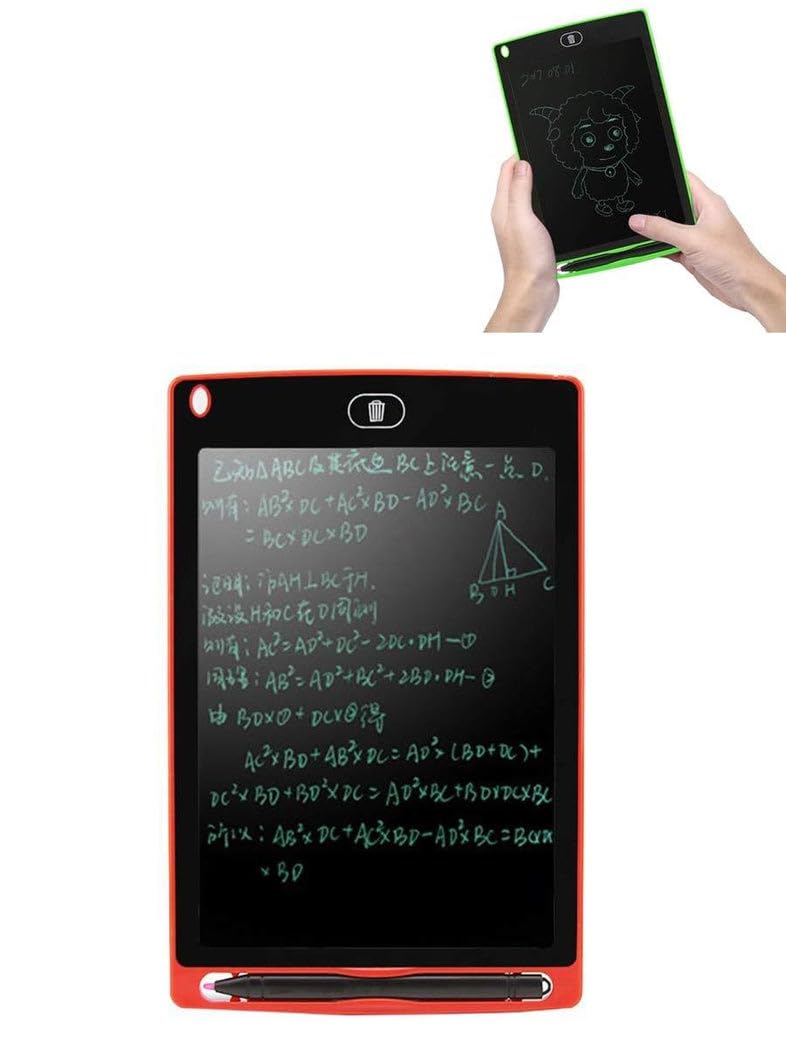 已知△ABC及其底边BC上任意一点D.
则有: AB²×DC+AC²×BD-AD²×BC
=BC×DC×BD
A
B D H C
证明: 作AH⊥BC于H.
假设H和C在D同侧
则有: AC²=AD²+DC²-2DC·DH-①
同理: AB²=AD²+BC²+2BD·DH-②
由 BD×①+DC×②得
AC²×BD+AB²×DC=AD²×(BD+DC)+
DC²×BD+BD²×DC=AD²×BC+BD×DC×BC
所以: AB²×DC+AC²×BD-AD²×BC=BC×
×BD